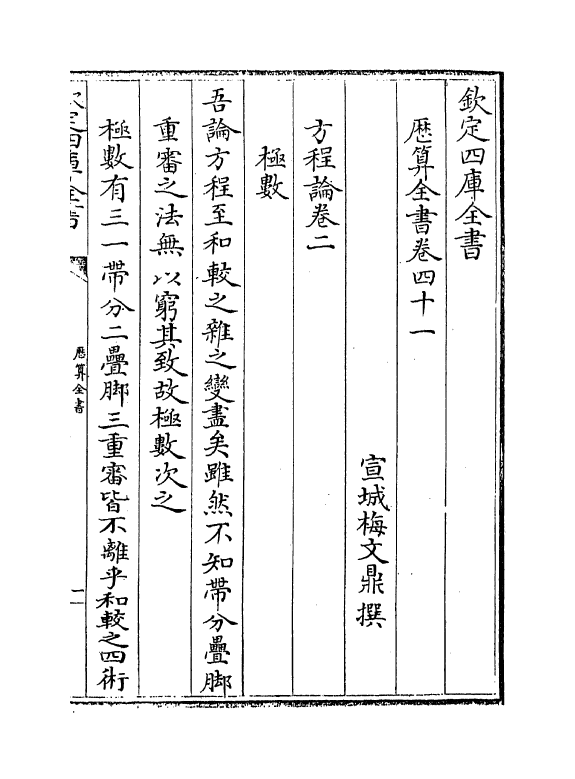 欽定四庫全書
厯算全書卷四十一
宣城梅文鼎撰
方程論卷二
極數
吾論方程至和較之雜之變盡矣雖然不知帶分疊脚
重審之法無以窮其致故極數次之
極數有三一帶分二疊脚三重審皆不離乎和較之四術
欽定四庫全書
厯算全書
一